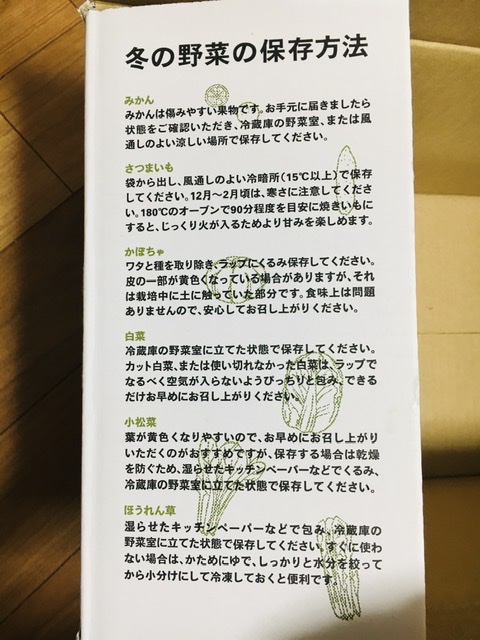 冬の野菜の保存方法
みかん
みかんは傷みやすい果物です。お手元に届きましたら
状態をご確認いただき、冷蔵庫の野菜室、または風
通しのよい涼しい場所で保存してください。
さつまいも
袋から出し、風通しのよい冷暗所(15℃以上)で保存
してください。12月〜2月頃は、寒さに注意してくださ
い。180℃のオーブンで90分程度を目安に焼きいもに
すると、じっくり火が入るためより甘みを楽しめます。
かぼちゃ
ワタと種を取り除き、ラップにくるみ保存してください。
皮の一部が黄色くなっている場合がありますが、それ
は栽培中に土に触っていた部分です。食味上は問題
ありませんので、安心してお召し上がりください。
白菜
冷蔵庫の野菜室に立てた状態で保存してください。
カット白菜、または使い切れなかった白菜は、ラップで
なるべく空気が入らないようぴっちりと包み、できる
だけお早めにお召し上がりください。
小松菜
葉が黄色くなりやすいので、お早めにお召し上がり
いただくのがおすすめですが、保存する場合は乾燥
を防ぐため、湿らせたキッチンペーパーなどでくるみ、
冷蔵庫の野菜室に立てた状態で保存してください。
ほうれん草
湿らせたキッチンペーパーなどで包み、冷蔵庫の
野菜室に立てた状態で保存してください。すぐに使わ
ない場合は、かためにゆで、しっかりと水分を絞って
から小分けにして冷凍しておくと便利です。